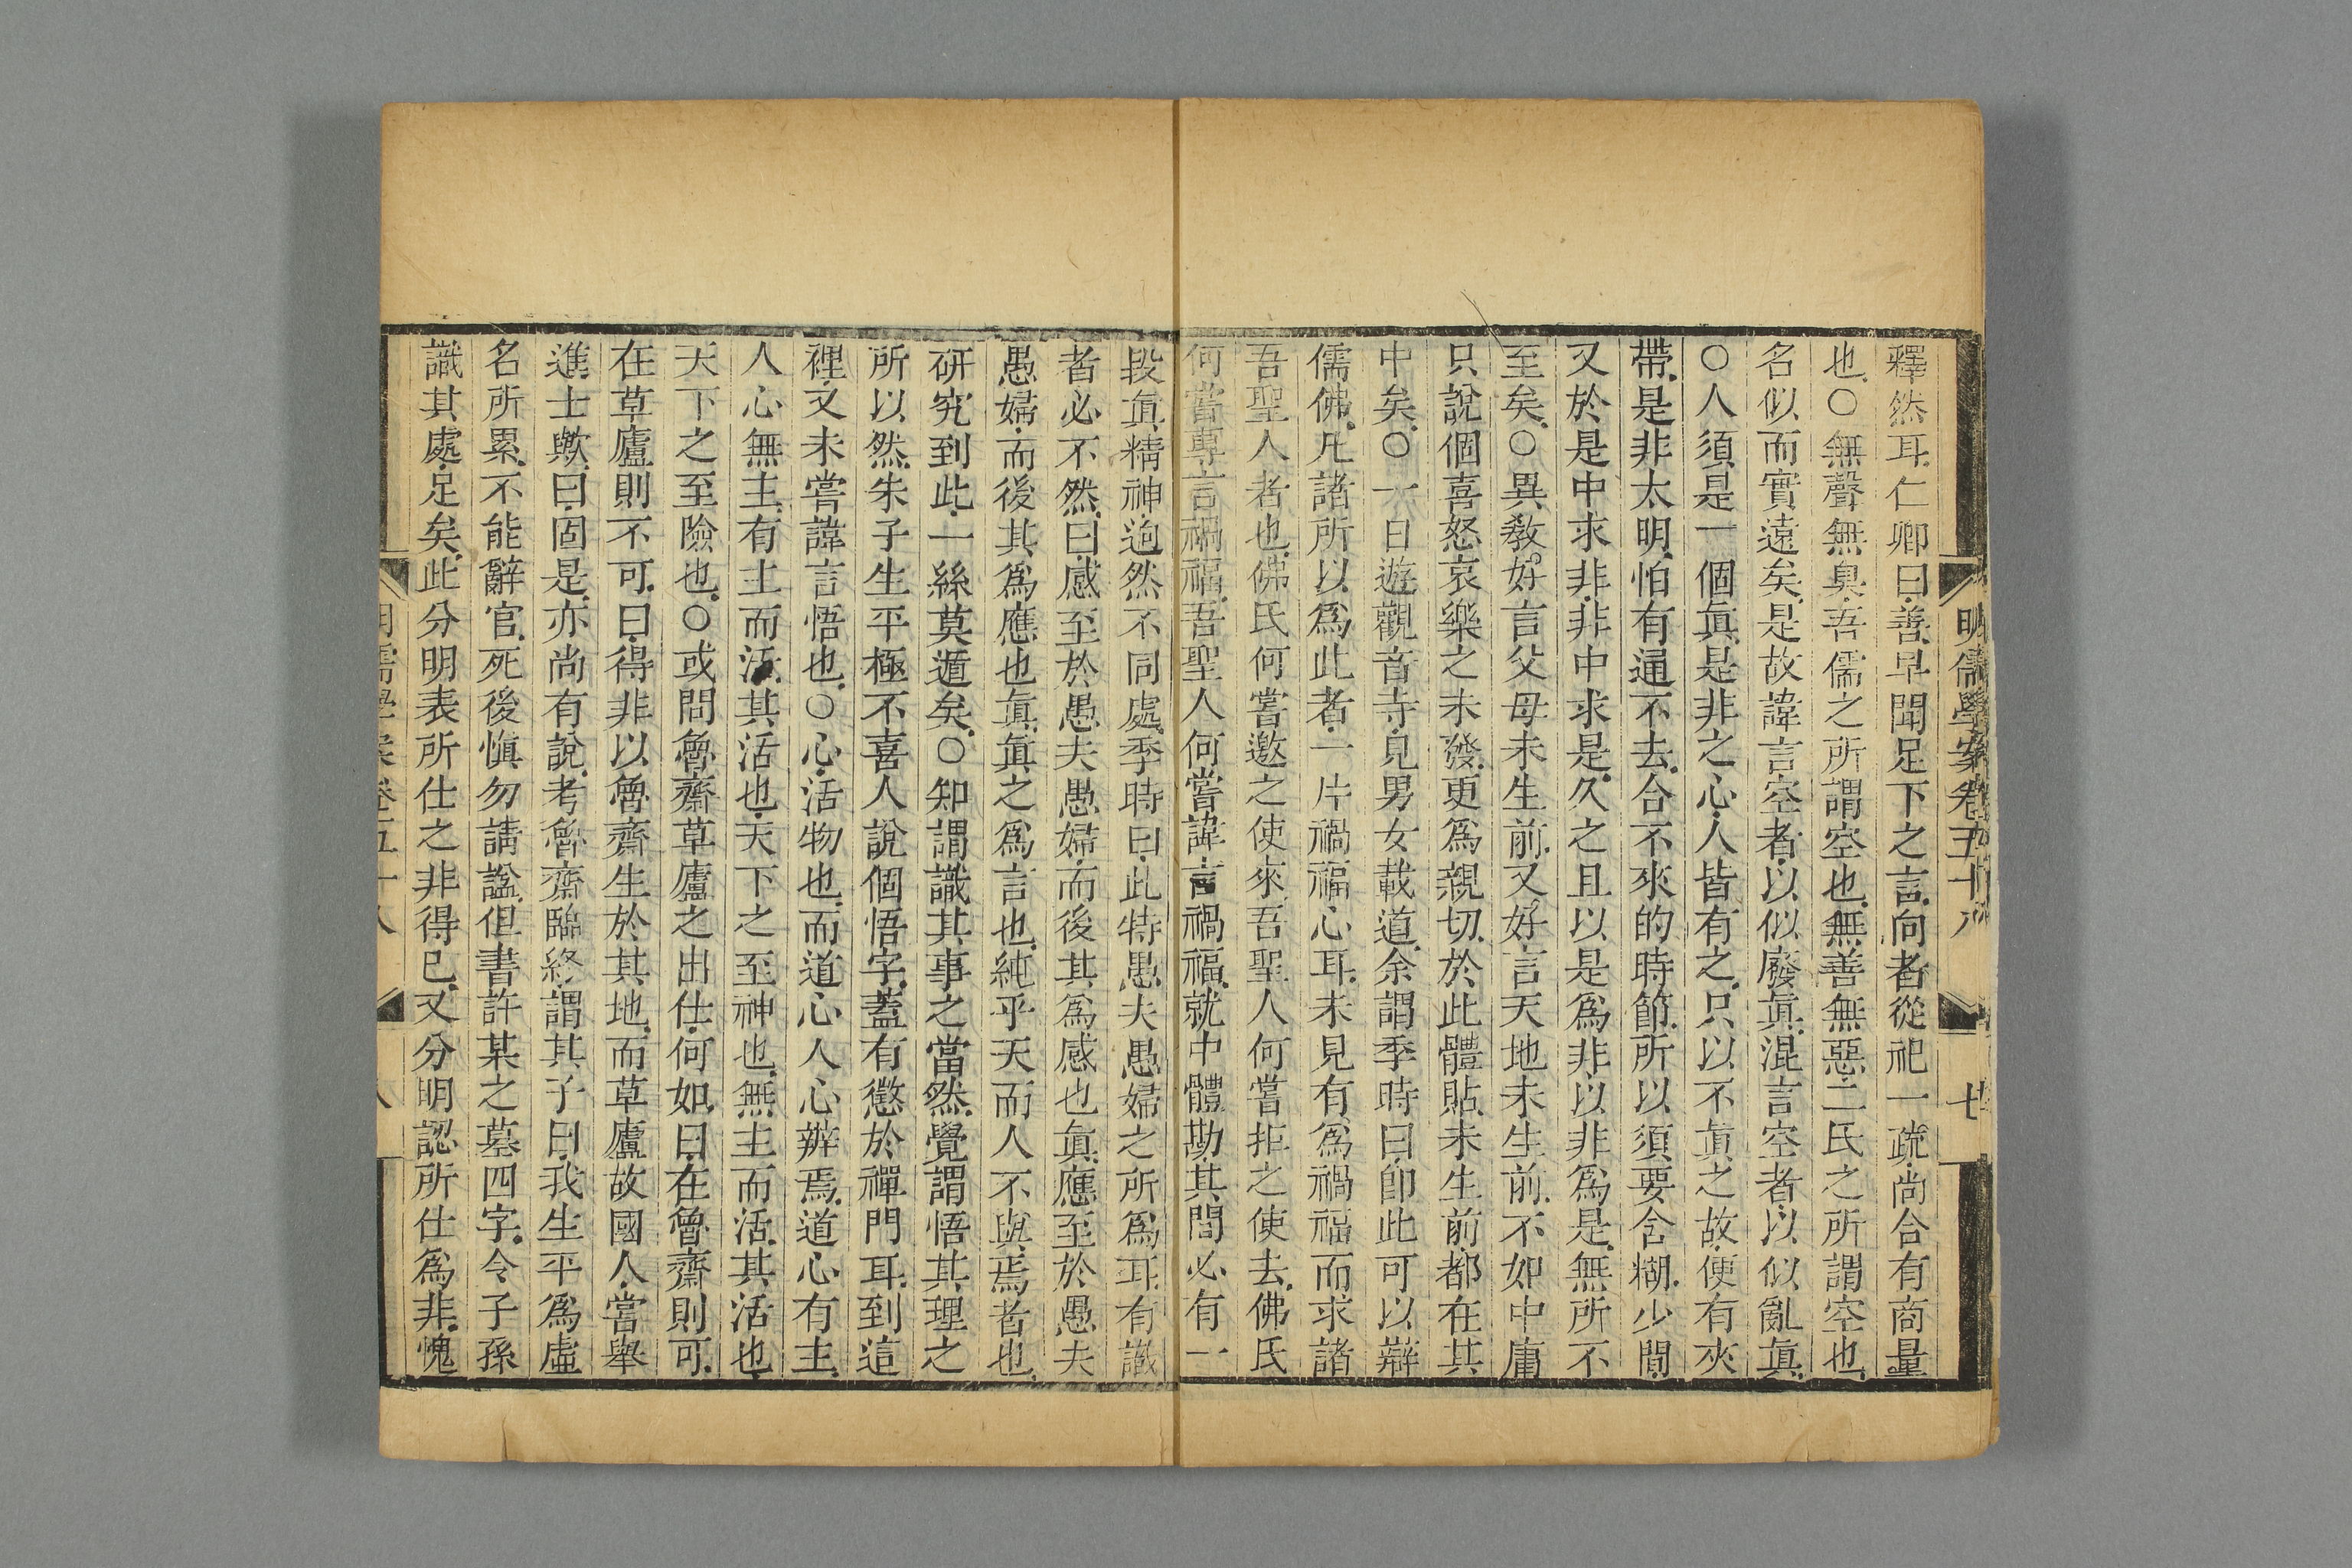 明儒學案卷五十八
七
釋然耳.仁卿曰.善.早聞足下之言.向者從祀一疏.尚合有商量
也.○無聲無臭.吾儒之所謂空也.無善無惡.二氏之所謂空也.
名似而實遠矣.是故諱言空者.以似廢眞.混言空者.以似亂眞.
○人須是一個眞.是非之心.人皆有之.只以不眞之故.便有夾
帶.是非太明.怕有通不去.合不來的時節.所以須要含糊.少間.
又於是中求非.非中求是.久之且以是爲非.以非爲是.無所不
至矣.○異教好言父母未生前.又好言天地未生前.不如中庸
只說個喜怒哀樂之未發.更爲親切.於此體貼.未生前都在其
中矣.○一日遊觀音寺.見男女載道.余謂季時曰.卽此可以辯
儒佛.凡諸所以爲此者.一片禍福心耳.未見有爲禍福而求諸
吾聖人者也.佛氏何嘗邀之使來.吾聖人何嘗拒之使去.佛氏
何嘗專言禍福.吾聖人何嘗諱言禍福.就中體勘.其間必有一
段眞精神.逈然不同處.季時曰.此特愚夫愚婦之所爲耳.有識
者必不然.曰.感至於愚夫愚婦.而後其爲感也眞.應至於愚夫
愚婦.而後其爲應也眞.眞之爲言也.純乎天而人不與焉者也.
研究到此.一絲莫遁矣.○知謂識其事之當然.覺謂悟其理之
所以然.朱子生平極不喜人說個悟字.蓋有懲於禪門耳.到這
裡又未嘗諱言悟也.○心.活物也.而道心人心辨焉.道心有主.
人心無主.有主而活.其活也.天下之至神也.無主而活.其活也.
天下之至險也.○或問魯齋草廬之出仕.何如.曰.在魯齋則可.
在草廬則不可.曰.得非以魯齋生於其地.而草廬故國人.嘗舉
進士歟.曰.固是.亦尚有說.考魯齋臨終謂其子曰.我生平爲虛
名所累.不能辭官.死後愼勿請諡.但書許某之墓四字.令子孫
識其處.足矣.此分明表所仕之非得已.又分明認所仕爲非.愧
明儒學案卷五十八
八